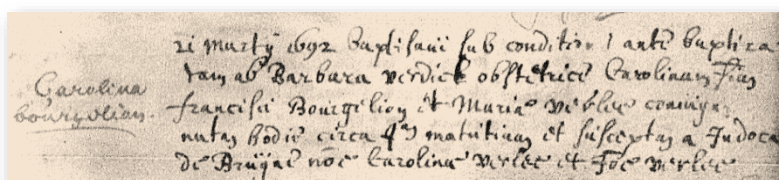 Carolina
bourgelion.
21 martij 1692 baptisavi sub conditione ante baptiza
tam ab Barbara verdick obstetrice Carolinam fiam
francisci Bourgelion et Mariae verlee coniugu
natam hodie circa 4am matutinam et suscepta a Judoca
de Bruijne noe Carolina verlee et Joe verlee